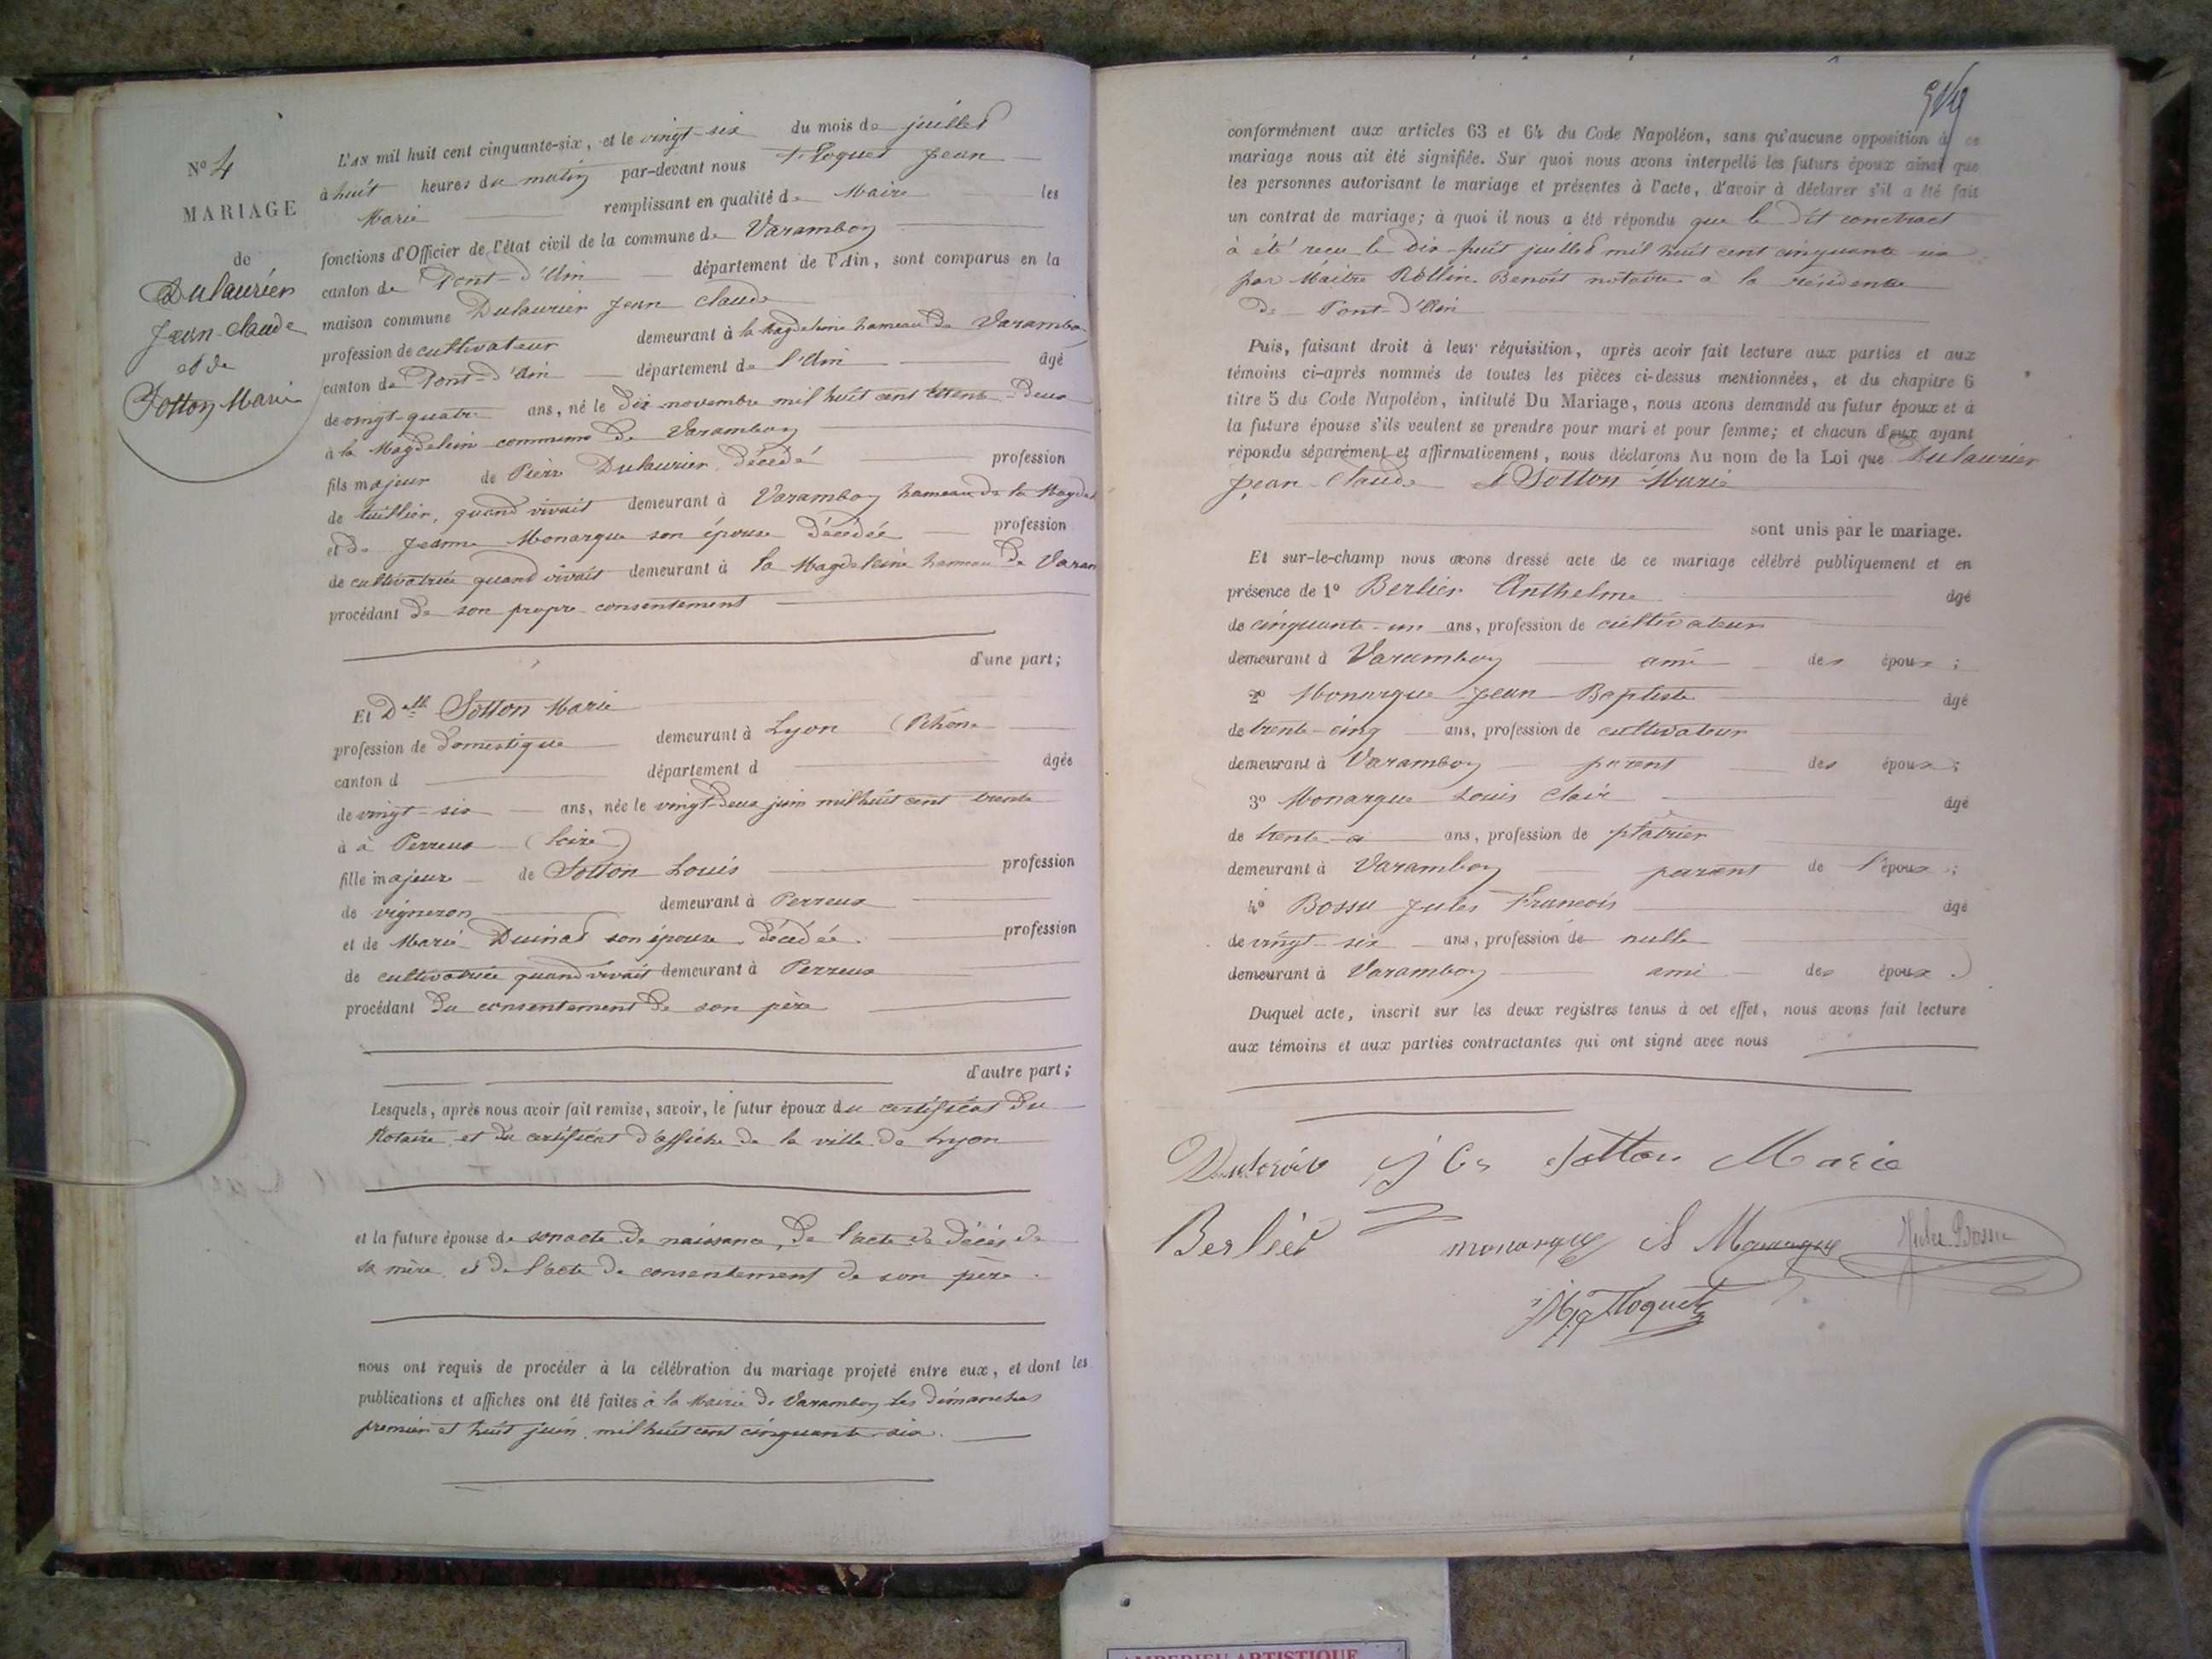 N° 4
MARIAGE
de
Dulaurier
Jean-Claude
et de
Sotton Marie
L'AN mil huit cent cinquante-six, et le vingt-six du mois de juillet
à huit heures du matin par-devant nous Floquet Jean
Marie remplissant en qualité de Maire les
fonctions d'Officier de l'état civil de la commune de Varambon
canton de Pont-d'Ain département de l'Ain, sont comparus en la
maison commune Dulaurier Jean Claude
profession de cultivateur demeurant à la Magdeleine hameau de Varambon
canton de Pont-d'Ain département de l'Ain âgé
de vingt-quatre ans, né le dix novembre mil huit cent trente-deux
à la Magdelein commune de Varambon
fils majeur de Pierre Dulaurier, décédé profession
de tuillier, quand vivait demeurant à Varambon hameau de la Magdel
et de Jeanne Monarque son épouse décédée profession
de cultivatrice quand vivait demeurant à la Magdeleine hameau de Varam
procédant de son propre consentement
d'une part;
Et Delle Sotton Marie
profession de domestique demeurant à Lyon (Rhône
canton d département d âgée
de vingt-six ans, née le vingt-deux juin mil huit cent trente
à à Perreux (Loire)
fille majeure de Sotton Louis profession
de vigneron demeurant à Perreux
et de Marie son épouse, décédée. profession
de cultivatrice quand vivait demeurant à Perreux
procédant du consentement de son père
d'autre part;
Lesquels, après nous avoir fait remise, savoir, le futur époux du certificat du
Notaire, et du certificat d'affiche de la ville de Lyon
et la future épouse de son acte de naissance, de l'acte de décès de
sa mère, et de l'acte de consentement de son père.
nous ont requis de procéder à la célébration du mariage projeté entre eux, et dont les
publications et affiches ont été faites à la Mairie de Varambon les dimanches
premier et huit juin, mil huit cent cinquante-six.
conformément aux articles 63 et 64 du Code Napoléon, sans qu'aucune opposition à ce
mariage nous ait été signifiée. Sur quoi nous avons interpellé les futurs époux ainsi que
les personnes autorisant le mariage et présentes à l'acte, d'avoir à déclarer s'il a été fait
un contrat de mariage; à quoi il nous a été répondu que le dit conctract
à été reçu le dix-huit juillet mil huit cent cinquante six
par Maitre Rollin Benoit notaire à la résidence
de Pont-d'Ain
Puis, faisant droit à leur réquisition, après avoir fait lecture aux parties et aux
témoins ci-après nommés de toutes les pièces ci-dessus mentionnées, et du chapitre 6
titre 5 du Code Napoléon, intitulé Du Mariage, nous avons demandé au futur époux et à
la future épouse s'ils veulent se prendre pour mari et pour femme; et chacun d'eux ayant
répondu séparément et affirmativement, nous déclarons Au nom de la Loi que Dulaurier
Jean Claude et Sotton Marie
sont unis par le mariage.
Et sur-le-champ nous avons dressé acte de ce mariage célébré publiquement et en
présence de 1° Berlier Anthelme âgé
de cinquante-un ans, profession de cultivateur
demeurant à Varambon ami des époux;
2° Monarque Jean-Baptiste âgé
de trente-cinq ans, profession de cultivateur
demeurant à Varambon parent des époux;
3° Monarque Louis Clair âgé
de trente ans, profession de plâtrier
demeurant à Varambon parent de l'époux;
4° Bossu Jules François âgé
de vingt-six ans, profession de nulle
demeurant à Varambon ami des époux.
Duquel acte, inscrit sur les deux registres tenus à cet effet, nous avons fait lecture
aux témoins et aux parties contractantes qui ont signé avec nous
Sotton Marie
Berlier monarque Monarque Jules Bossu
Floquet
AMBERIEU ARTISTIQUE